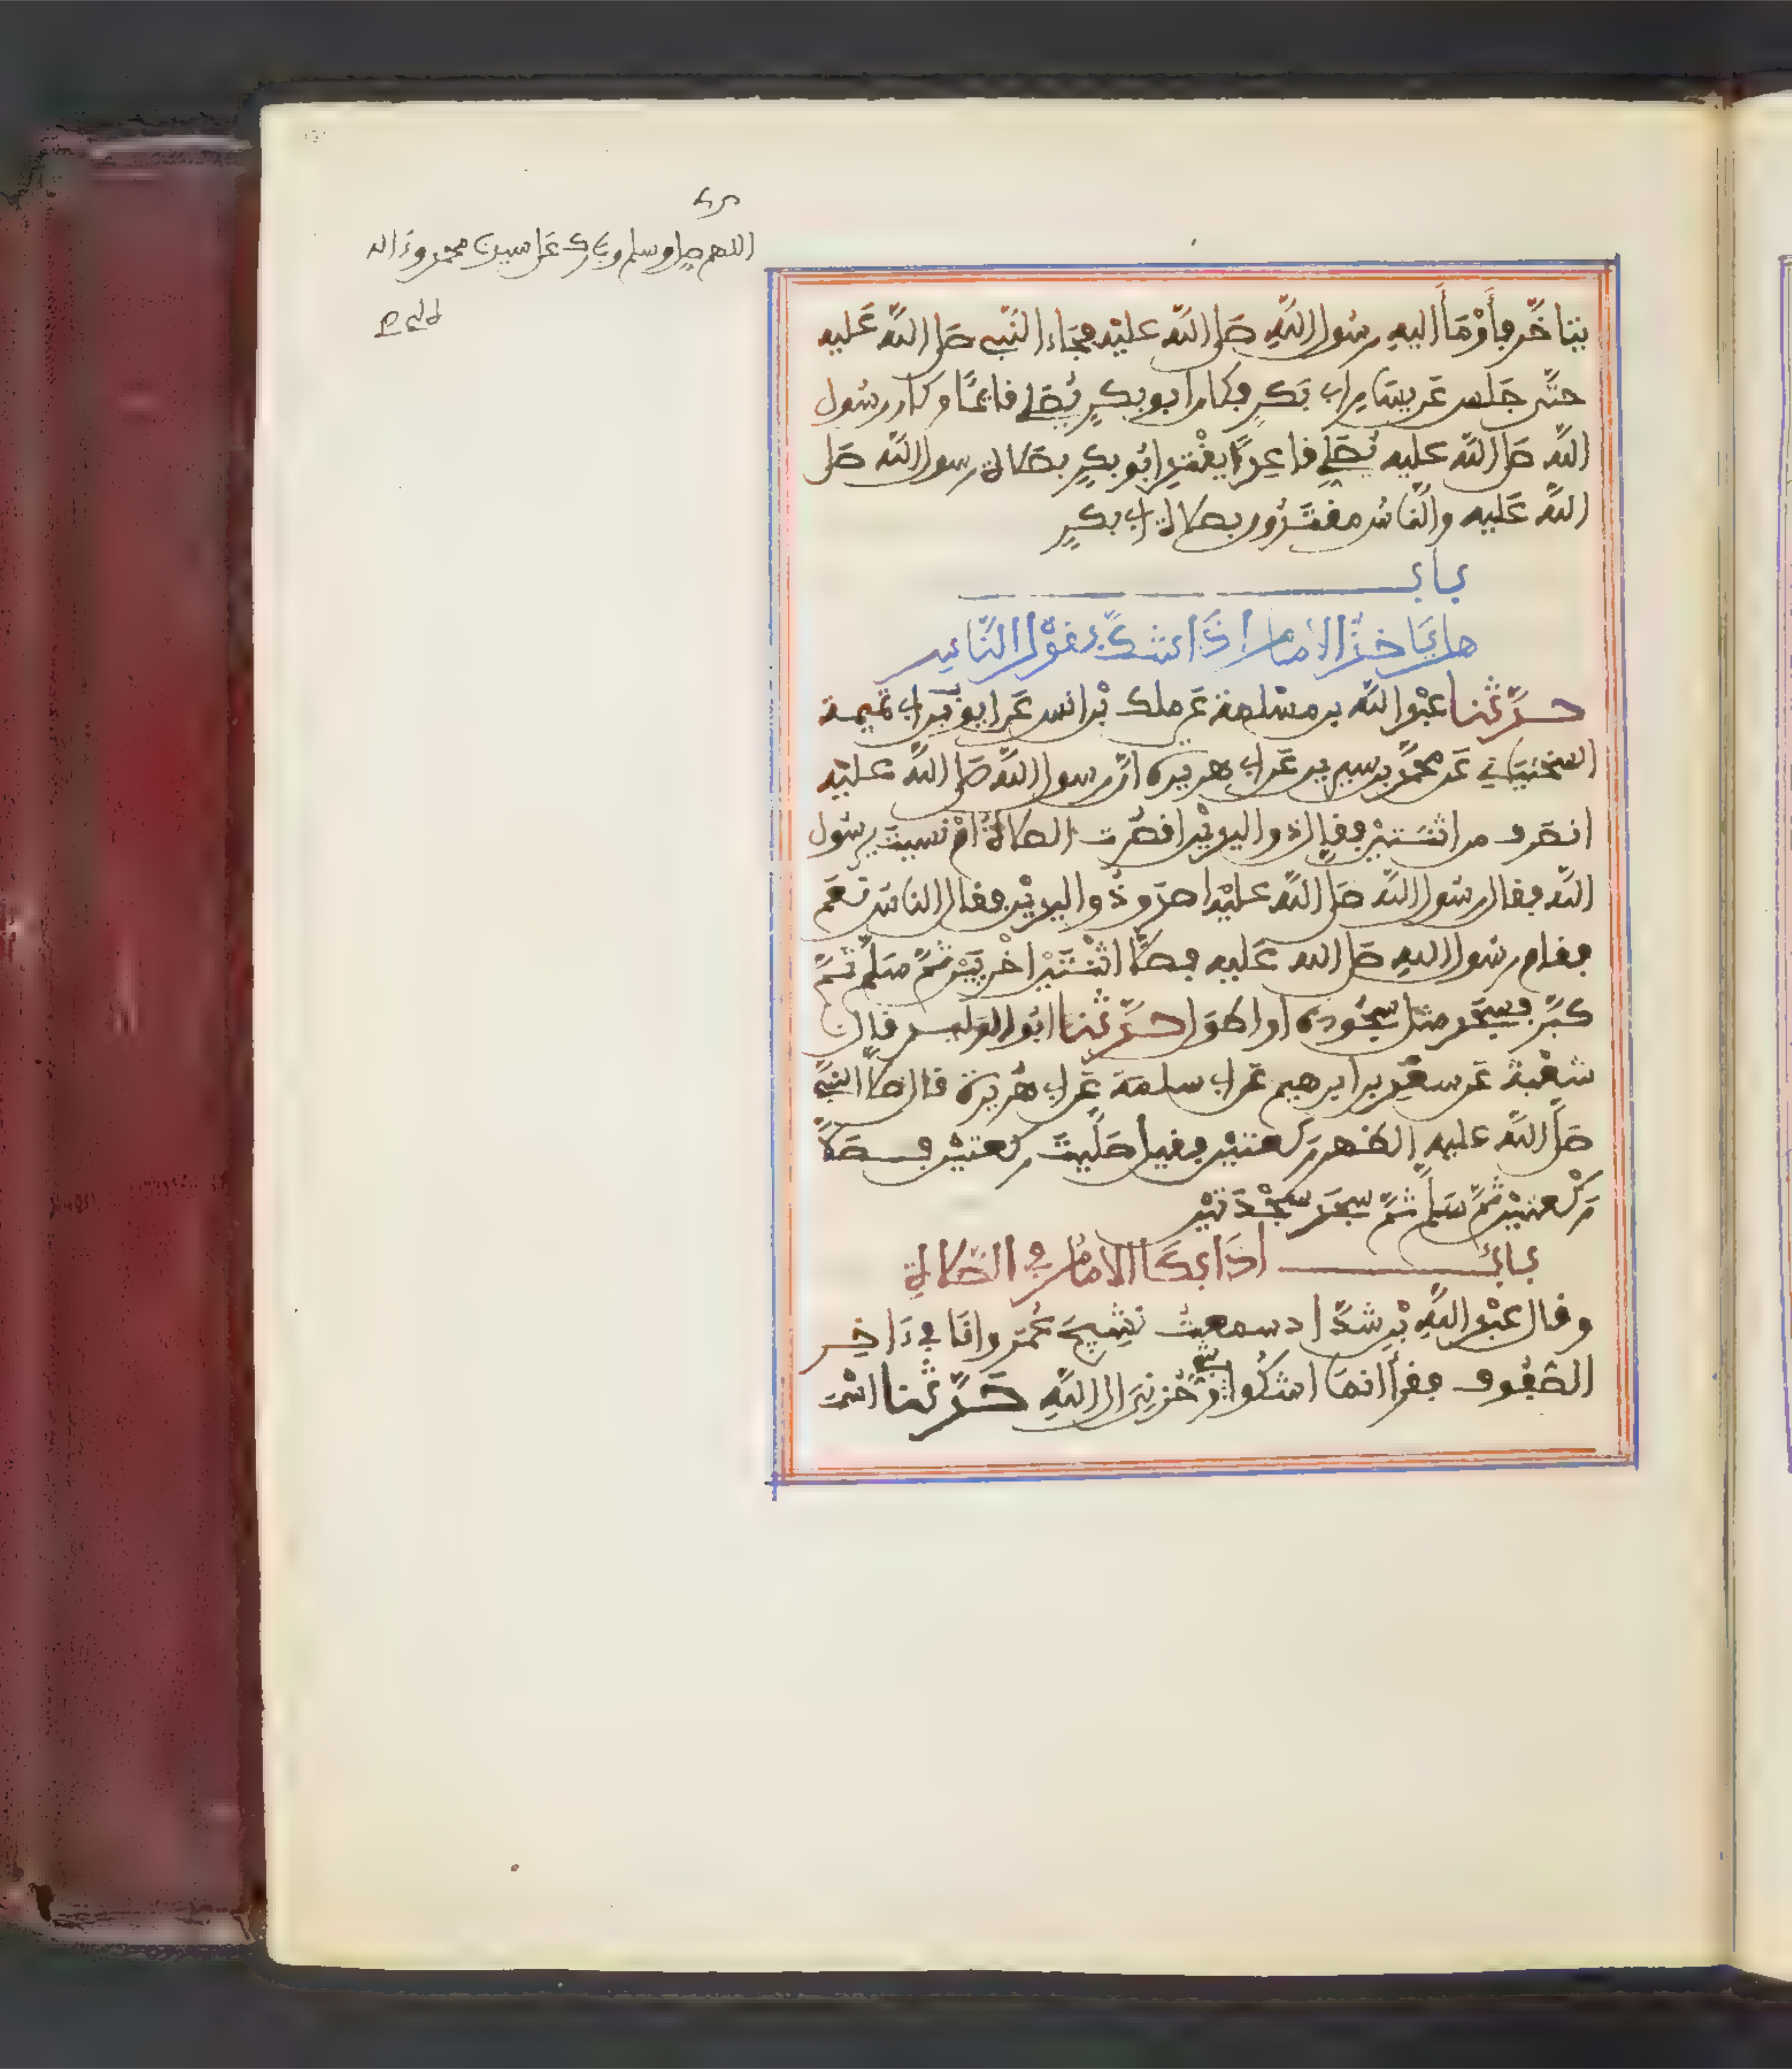 اللهم صل وسلم وبارك على سيدنا محمد وءاله
يتأخر فأومأ إليه رسول الله صلى الله عليه فجاء النبي صلى الله عليه
حتى جلس عن يسار أبي بكر فكان أبو بكر يصلي قائما وكان رسول
الله صلى الله عليه يصلي قاعدا يقتدي أبو بكر بصلاة رسول الله صلى
الله عليه والناس مقتدون بصلاة أبي بكر
باب
هل يأخذ الإمام إذا شك بقول الناس
حدثنا عبد الله بن مسلمة عن ملك بن أنس عن أيوب بن أبي تميمة
السختياني عن محمد بن سيرين عن أبي هريرة أن رسول الله صلى الله عليه
انصرف من اثنتين فقال ذو اليدين أقصرت الصلاة أم نسيت يرسول
الله فقال رسول الله صلى الله عليه أصدق ذو اليدين فقال الناس نعم
فقام رسول الله صلى الله عليه فصلى اثنتين أخريين ثم سلم ثم
كبر فسجد مثل سجوده أو أطول حدثنا أبو الوليد قال
شعبة عن سعد بن إبراهيم عن أبي سلمة عن أبي هريرة قال صلى النبي
صلى الله عليه الظهر ركعتين فقيل صليت ركعتين فصلى
ركعتين ثم سلم ثم سجد سجدتين
باب إذا بكى الإمام في الصلاة
وقال عبد الله بن شداد سمعت نشيج عمر وأنا في ءاخر
الصفوف فقرأ إنما أشكوا بثي وحزني إلى الله حدثنا